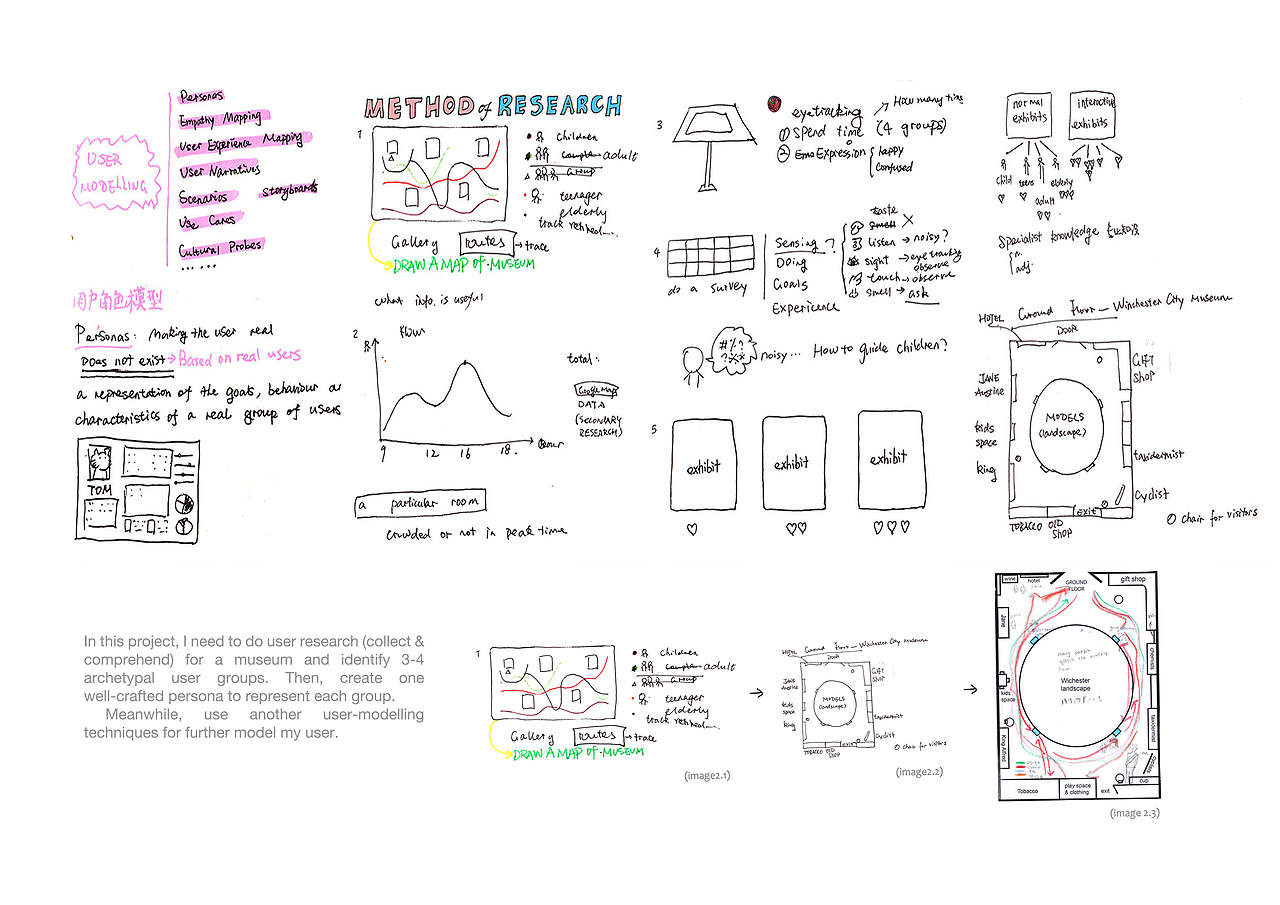 USER
MODELLING
Personas
Empathy Mapping
User Experience Mapping
User Narratives
Scenarios Storyboards
Use Cases
Cultural Probes
......
用户角色模型
Personas: Making the user real
Does not exist → Based on real users
a representation of the goals, behaviour or
characteristics of a real group of users
TOM
METHOD of RESEARCH
1
Children
adult
Group
teenager
elderly
Gallery routes → trace
DRAW A MAP OF MUSEUM
what info. is useful
2
flow
9 12 16 18. hour
total:
Google Map
DATA
(SECONDARY
RESEARCH)
a particular room
crowded or not in peak time
3
eyetracking → How many time
① spend time (4 groups)
② Expression { happy
confused
4
do a survey
Sensing ?
Doing
Goals
Experience
taste
smell X
listen → noisy?
sight → eye tracking
observe
touch → observe
smell → ask
#?
noisy... How to guide children?
5
exhibit
exhibit
exhibit
normal
exhibits
interactive
exhibits
child teens adult elderly
Specialist knowledge
n.
adj.
HOTEL Ground floor — Winchester City Museum
DOOR
GIFT
SHOP
JANE
Austine
kids
space
king
MODELS
(landscape)
taxidermist
Cyclist
TOBACCO OLD
SHOP
exit
chair for visitors
In this project, I need to do user research (collect &
comprehend) for a museum and identify 3-4
archetypal user groups. Then, create one
well-crafted persona to represent each group.
Meanwhile, use another user-modelling
techniques for further model my user.
1
Children
adult
Group
teenager
elderly
Gallery routes → trace
DRAW A MAP OF MUSEUM
(image2.1)
→
HOTEL Ground floor — Winchester City Museum
DOOR
GIFT
SHOP
JANE
Austine
kids
space
king
MODELS
(landscape)
taxidermist
Cyclist
TOBACCO OLD
SHOP
exit
chair for visitors
(image2.2)
→
wine
hotel
GROUND
FLOOR
gift shop
Jane
chemists
kids
space
Wichester
landscape
taxidermist
King Alfred
cyclists
cup
Tobacco
play space
& clothing
exit
(image 2.3)